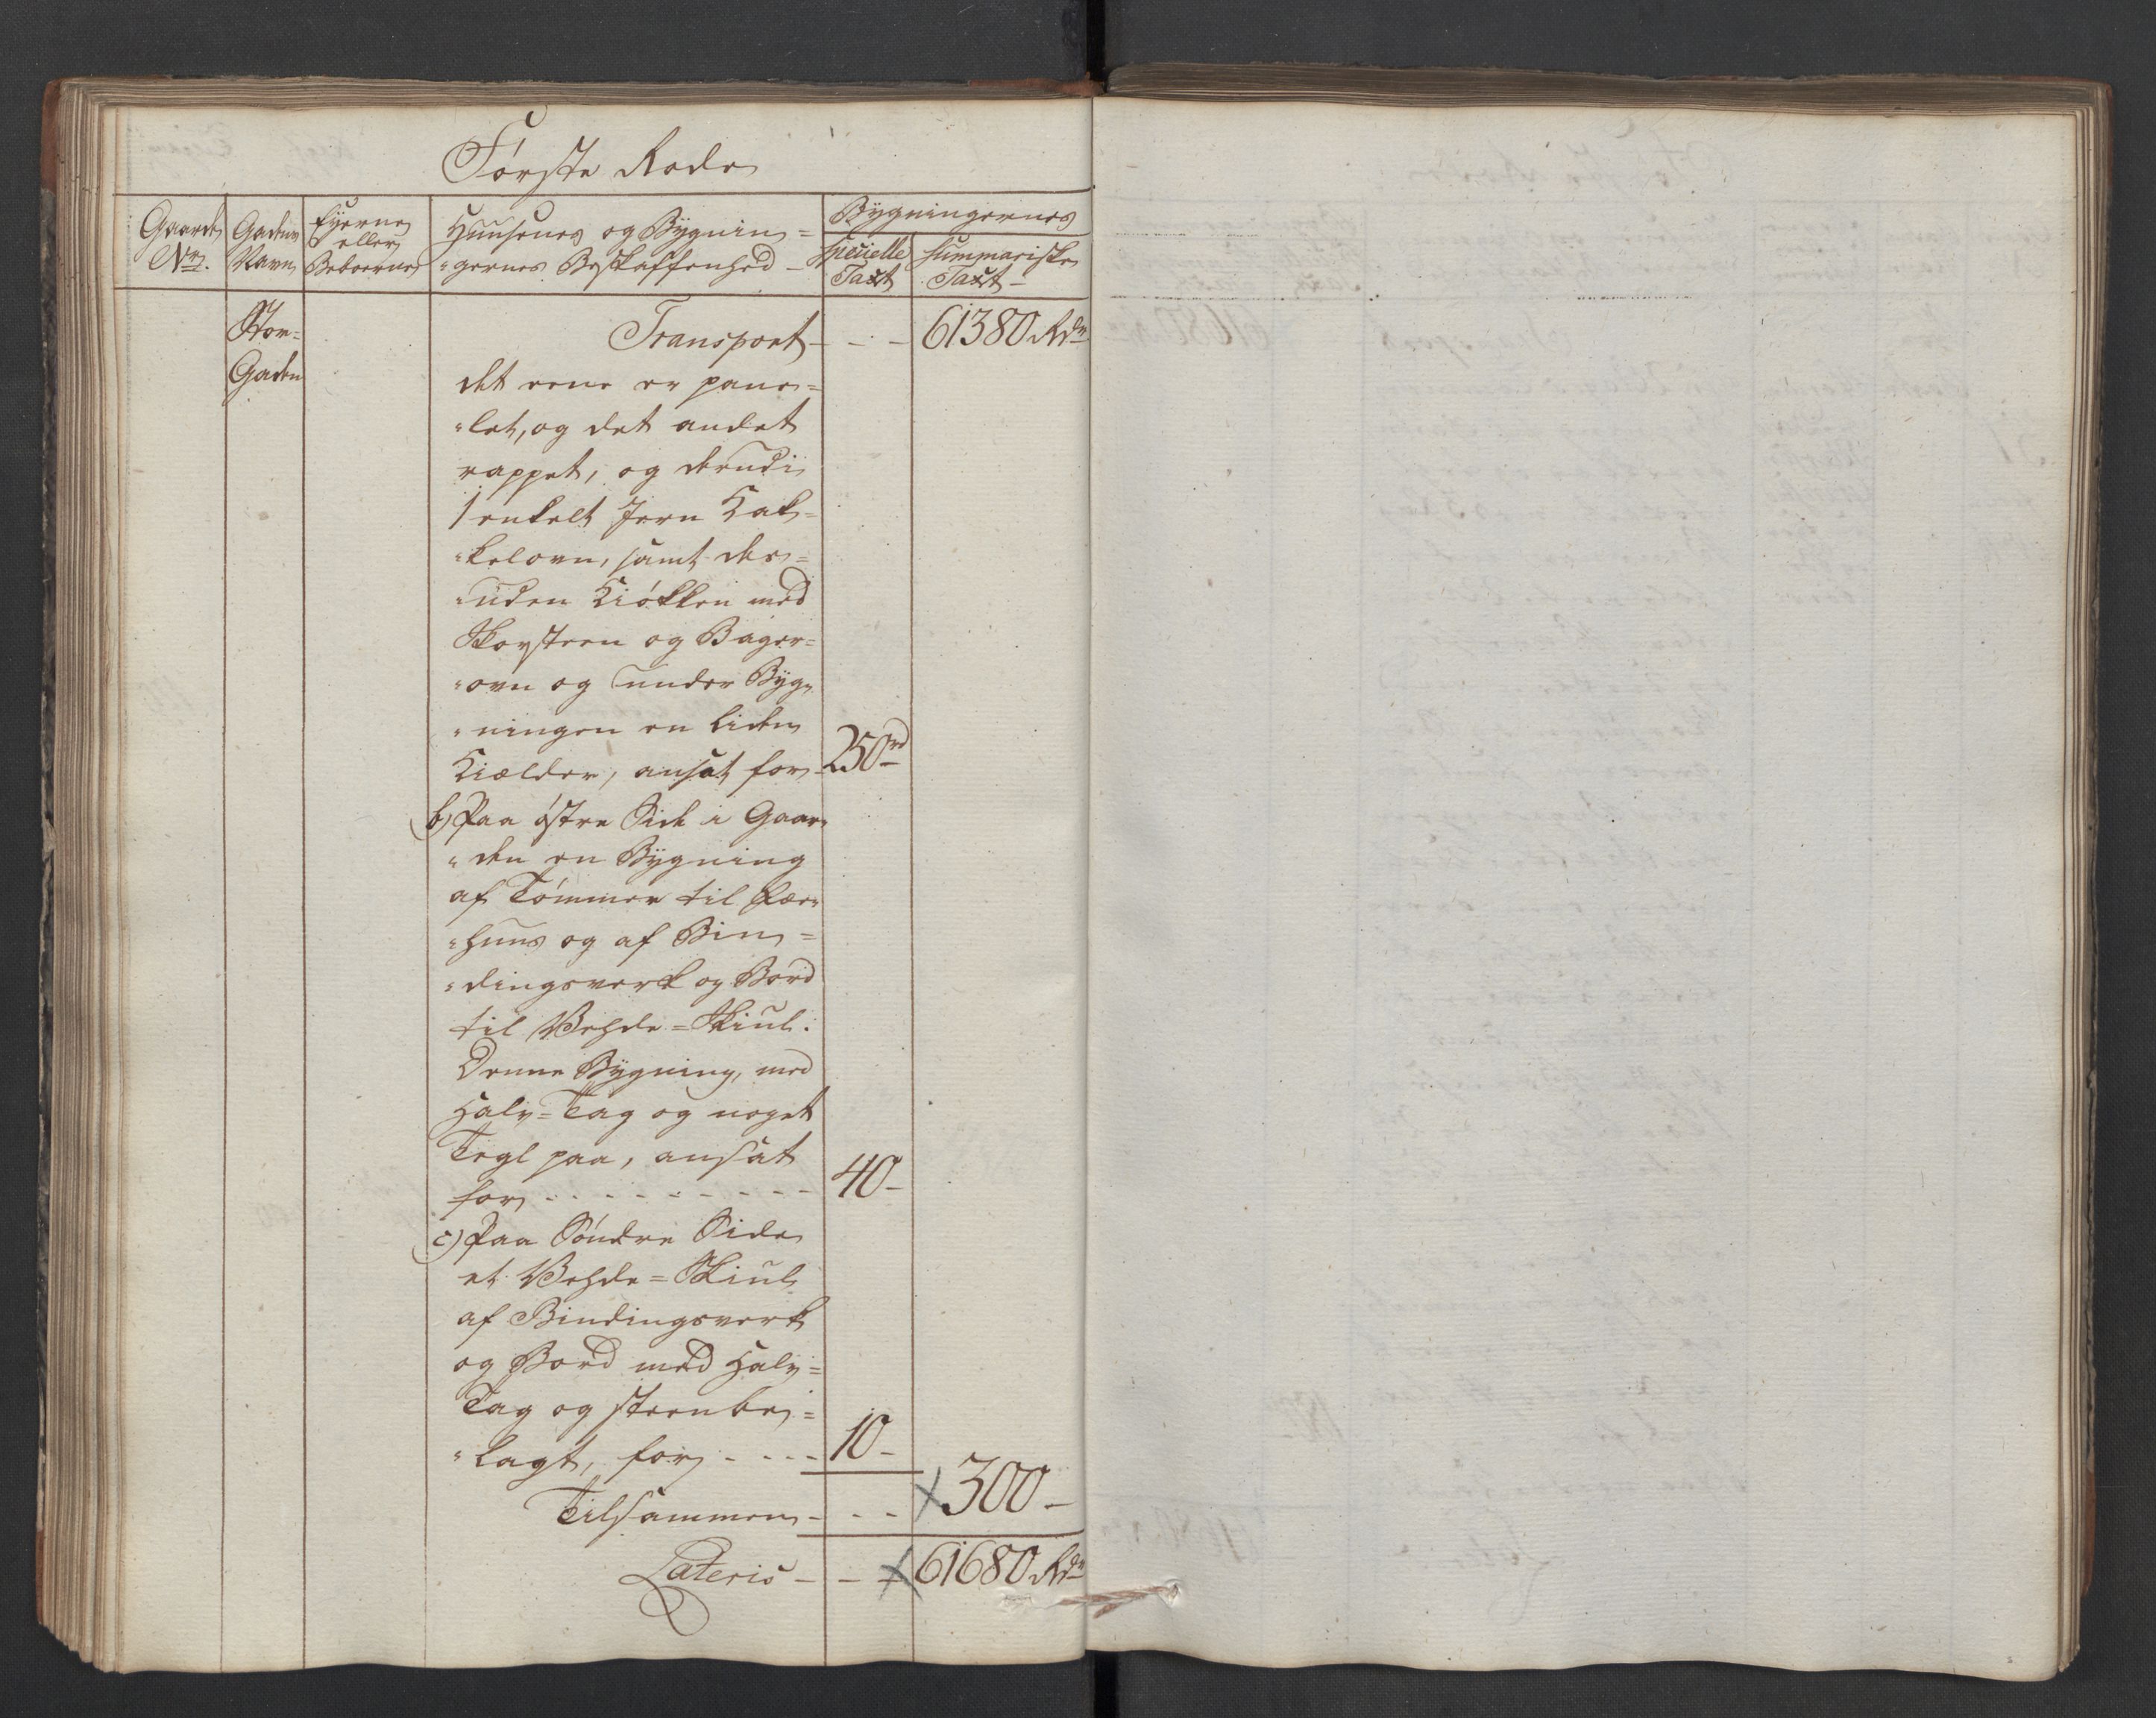 Første Rode
Gaardens No.
Gadens Navn
Eyerne eller Beboerne
Huusenes og Bygnin=
"gernes Beskaffenhed
Bygningernes
specielle Taxt
summariske Taxt
Stor=
Gaden
Transport - - - 61380 Rdr
det eene er pane=
"let, og det andet
rappet, og derudi
1 enkelt Jern Kak=
"kelovn, samt des=
"uden Kiøkken med
Skorsteen og Bager=
"ovn og under Byg=
"ningen en liden
Kielder, ansat for 250 rd
b) Paa østre Side i Gaar=
"den en Bygning
af Tømmer til Fæe=
"huus og af Bin=
"dingsverk og Bord
til Vehde=Skiul:
Denne Bygning, med
Halv=Tag og noget
Tegl paa, ansat
for - - - - - - - - 40 -
c) Paa Søndre Side
et Vehde=Skiul
af Bindingsverk
og Bord med Halv=
Tag og steenbe=
"lagt, for - - - - 10 -
Tilsammen - - - 300 -
Lateris - - 61680 Rdr